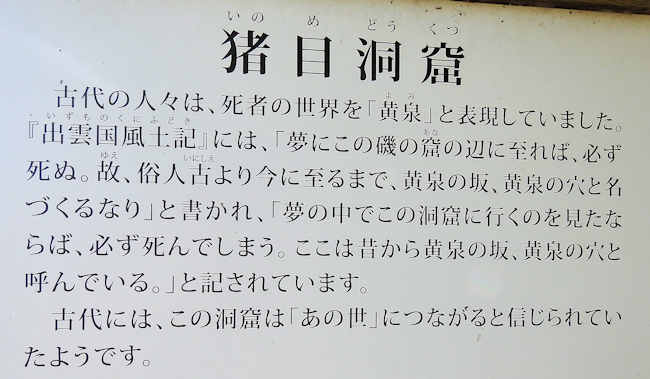 いのめどうくつ
猪目洞窟
古代の人々は、死者の世界を「黄泉」と表現していました。
『出雲国風土記』には、「夢にこの磯の窟の辺に至れば、必ず
死ぬ。故、俗人古より今に至るまで、黄泉の坂、黄泉の穴と名
づくるなり」と書かれ、「夢の中でこの洞窟に行くのを見たな
らば、必ず死んでしまう。ここは昔から黄泉の坂、黄泉の穴と
呼んでいる。」と記されています。
古代には、この洞窟は「あの世」につながると信じられてい
たようです。